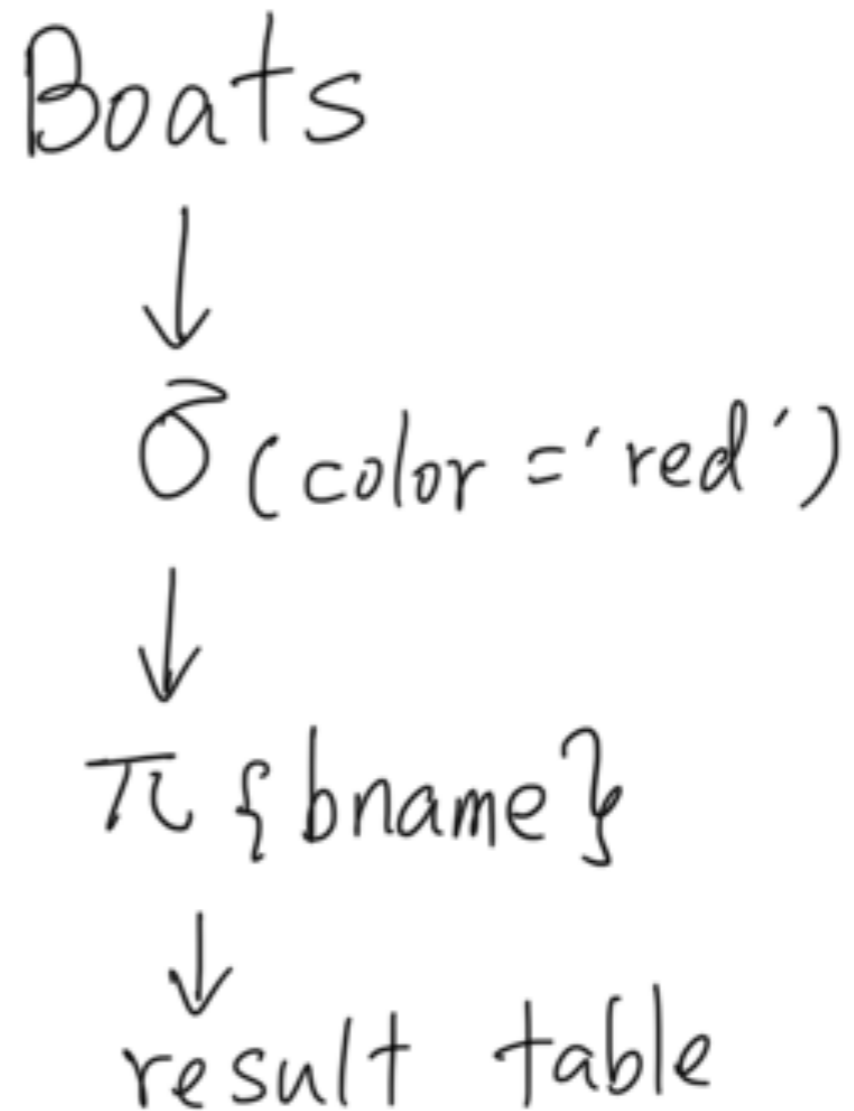 Boats
↓
σ (color = 'red')
↓
π {bname}
↓
result table